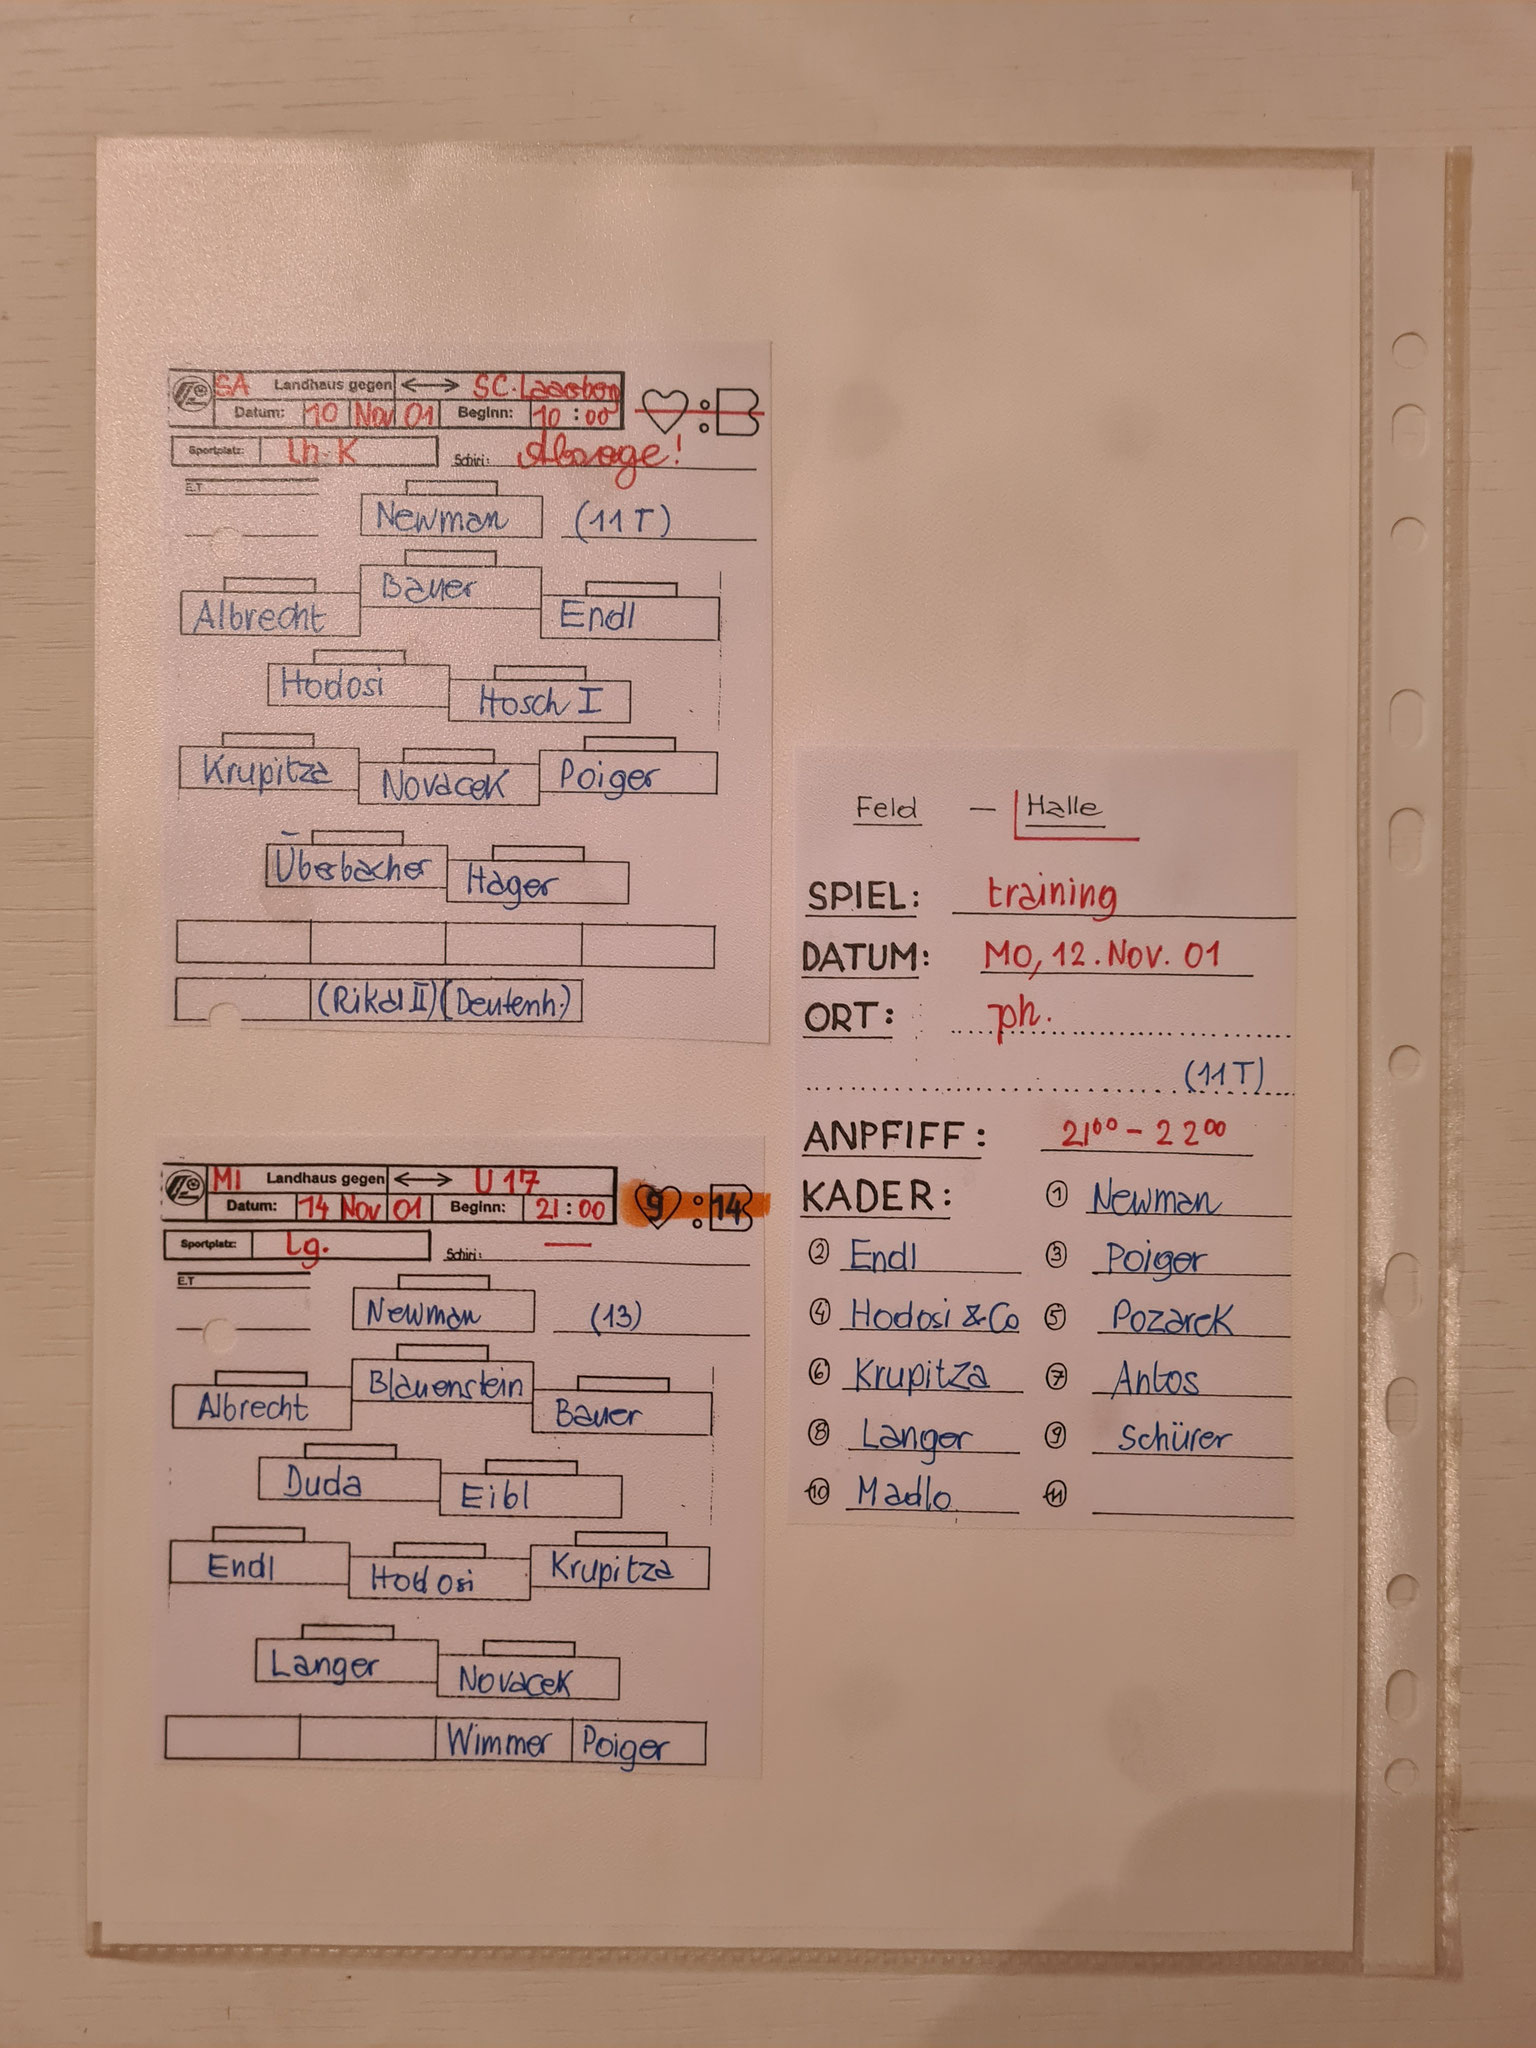 SA Landhaus gegen ←→ SC. Laarberg
Datum: 10 Nov 01 Beginn: 10:00 :
Sportplatz: Lh.K Schiri: Absage!
E.T
Newman (11T)
Bauer
Albrecht Endl
Hodosi Hosch I
Krupitza Novacek Poiger
Überbacher Hager
(Rikal II) (Deutenh.)
MI Landhaus gegen ←→ U17
Datum: 14 Nov 01 Beginn: 21:00 9:14
Sportplatz: Lg. Schiri: —
E.T
Newman (13)
Blauenstein
Albrecht Bauer
Duda Eibl
Endl Hodosi Krupitza
Langer Novacek
Wimmer Poiger
Feld — Halle
SPIEL: training
DATUM: MO, 12. Nov. 01
ORT: ph.
(11T)
ANPFIFF: 21⁰⁰ - 22⁰⁰
KADER: ① Newman
② Endl ③ Poiger
④ Hodosi & Co ⑤ Pozarek
⑥ Krupitza ⑦ Antos
⑧ Langer ⑨ Schürer
⑩ Madlo ⑪